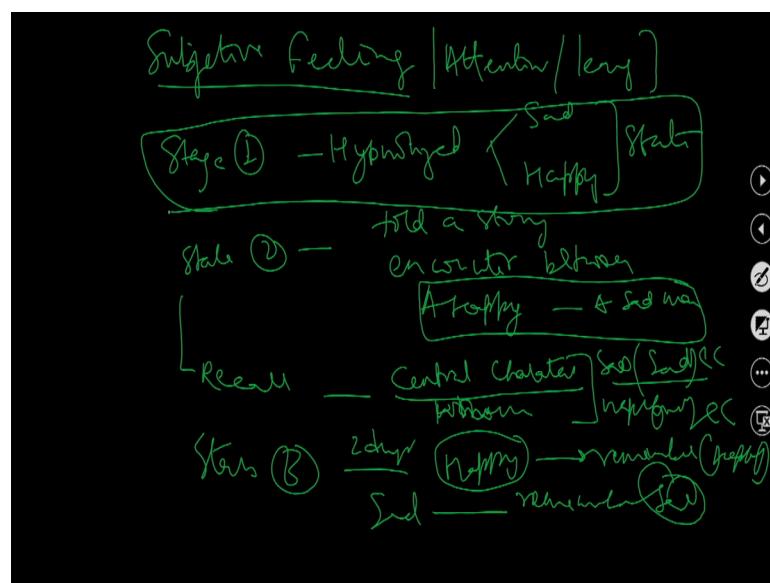 Subjetive Feeling [Attention/
Stage ① — Hypnotized Sad State
Happy
told a story
State ② — encounter between
A Happy — A Sad man
Recall — Central Character Sad (Sad) CC
CC
③ 2 days Happy — remember (Happy)
Sad — remember Sad